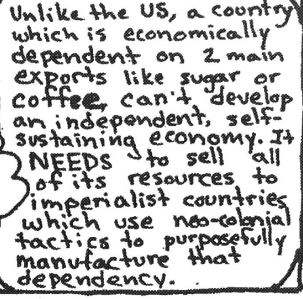 Unlike the US, a country
which is economically
dependent on 2 main
exports like sugar or
coffee, can't develop
an independent, self-
sustaining economy. It
NEEDS to sell all
of its resources to
imperialist countries
which use neo-colonial
tactics to purposefully
manufacture that
dependency.